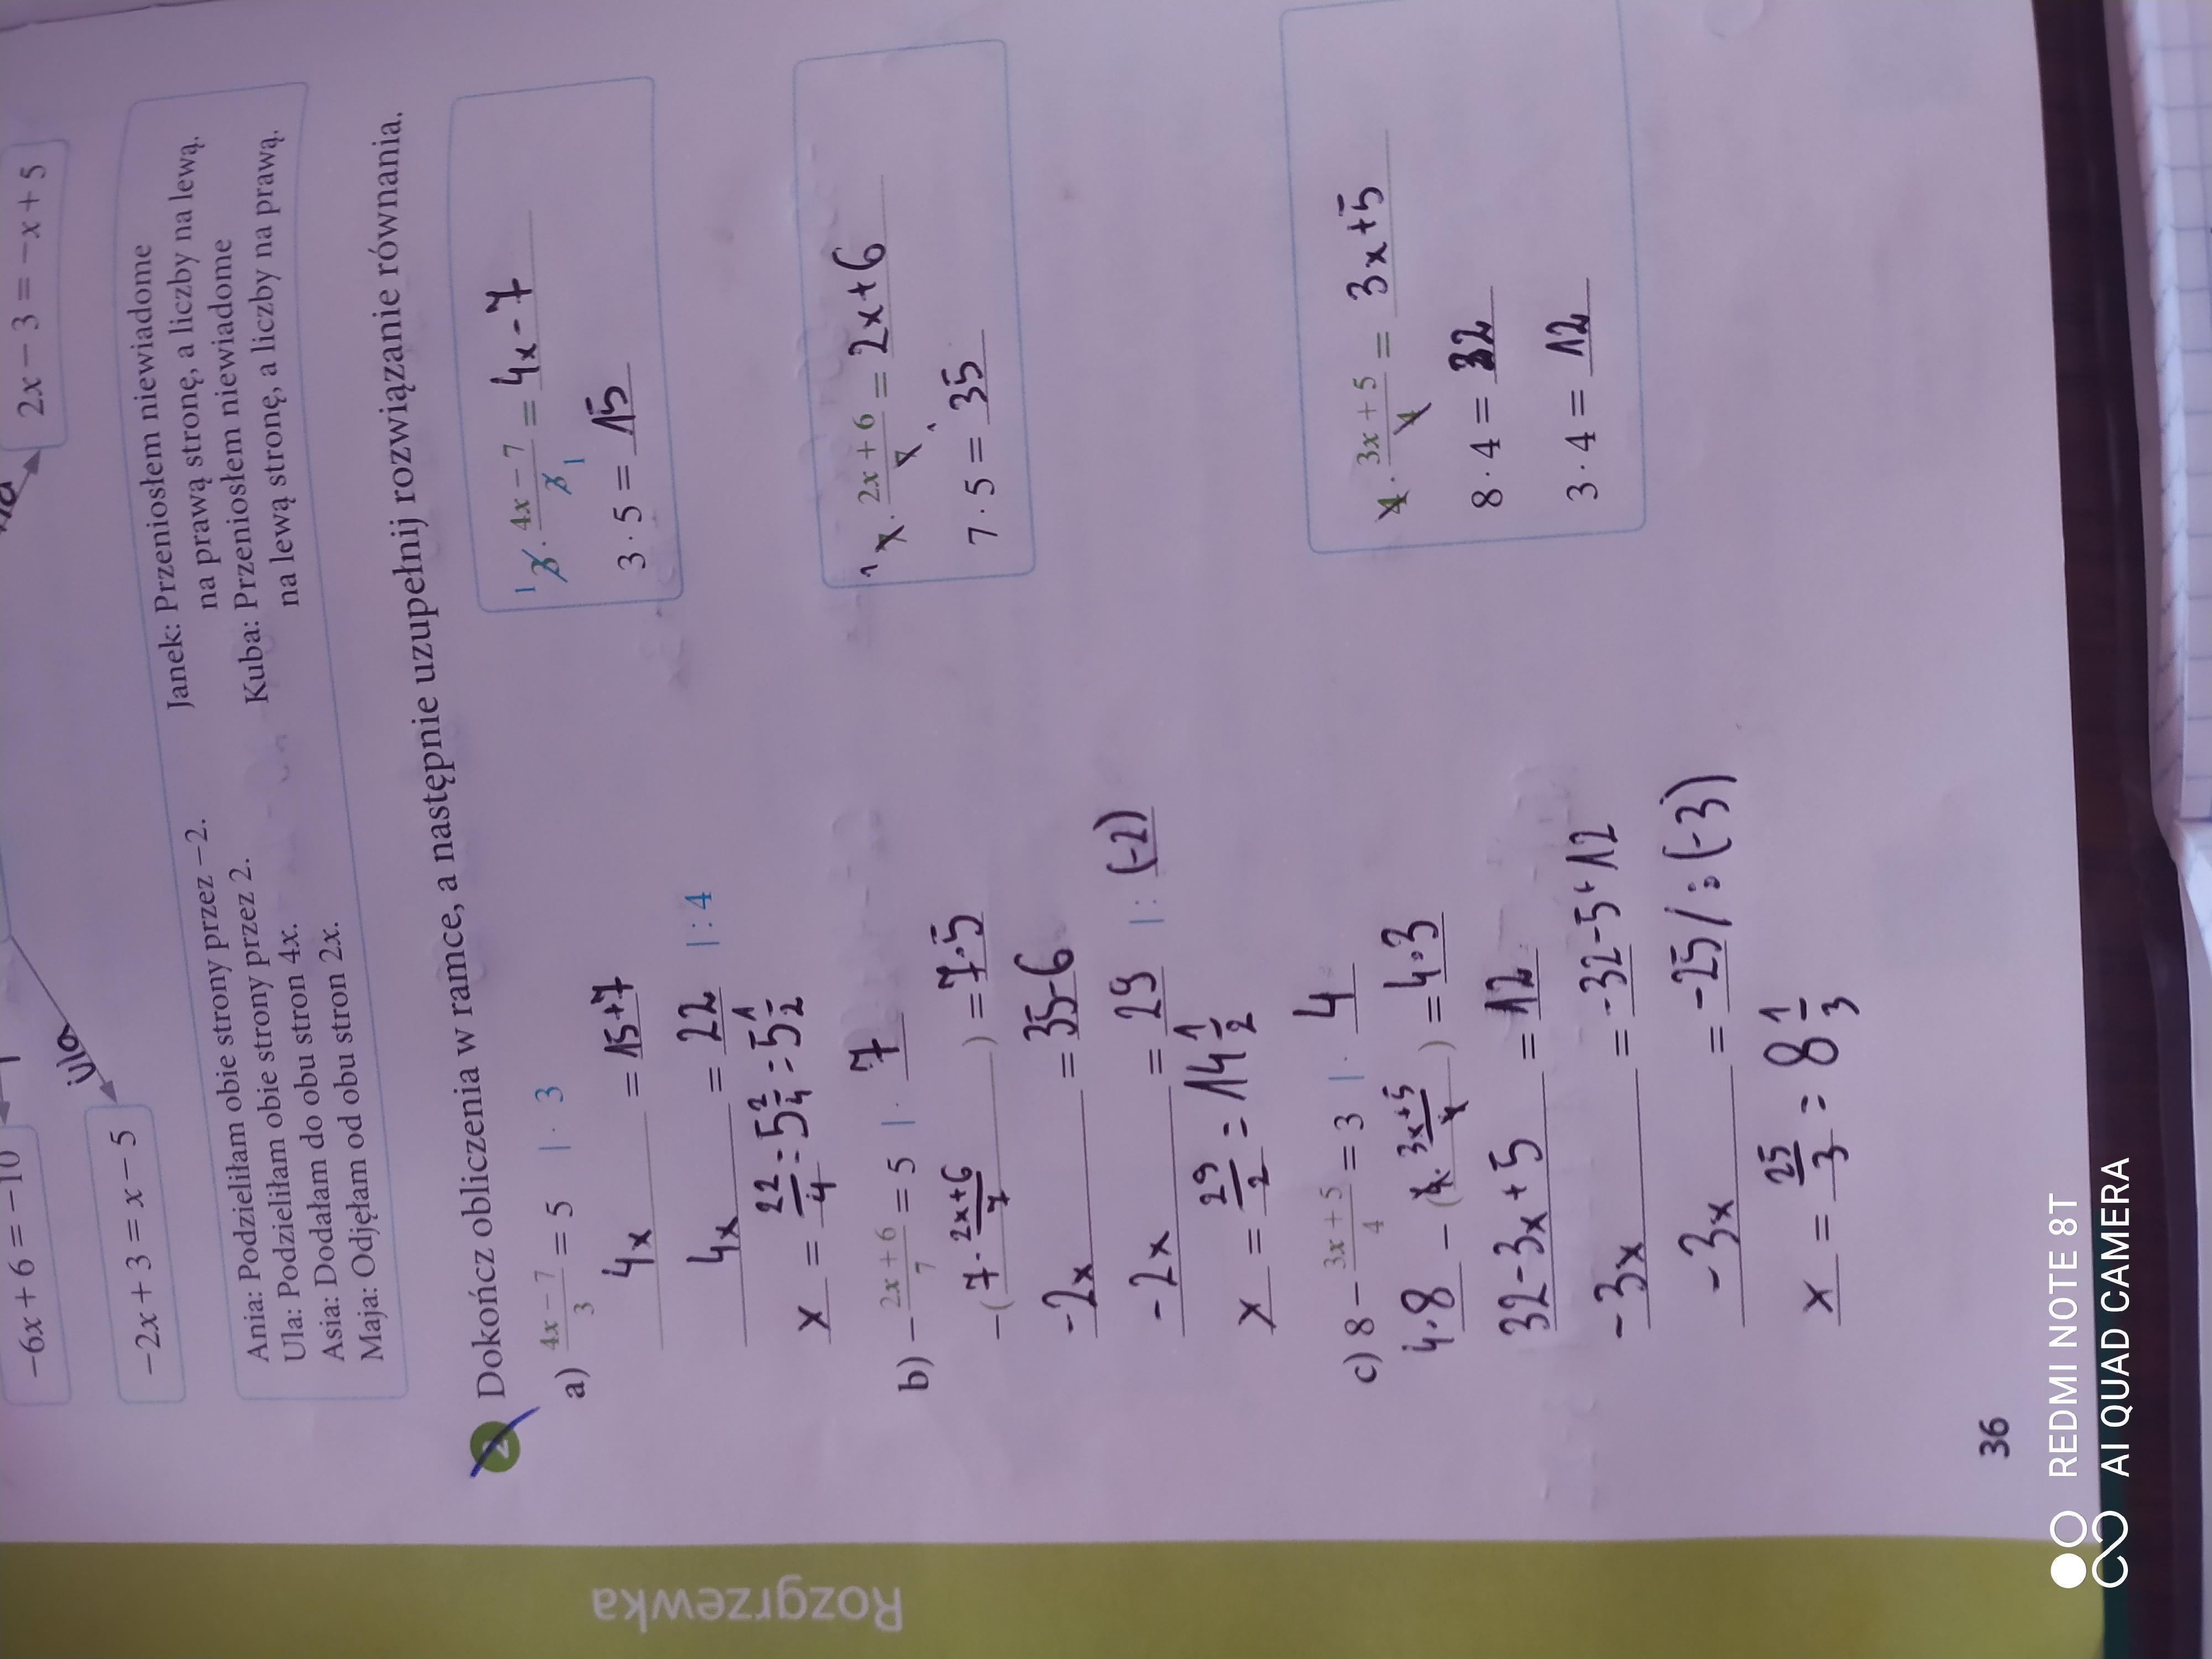 -6x + 6 = -10
2x - 3 = -x + 5
Ula
-2x + 3 = x - 5
Ania: Podzieliłam obie strony przez -2.
Ula: Podzieliłam obie strony przez 2.
Asia: Dodałam do obu stron 4x.
Maja: Odjęłam od obu stron 2x.
Janek: Przeniosłem niewiadome
na prawą stronę, a liczby na lewą.
Kuba: Przeniosłem niewiadome
na lewą stronę, a liczby na prawą.
2 Dokończ obliczenia w ramce, a następnie uzupełnij rozwiązanie równania.
a) \frac{4x - 7}{3} = 5 | · 3
4x = 15+7
4x = 22 | : 4
x = \frac{22}{4} = 5\frac{2}{4} = 5\frac{1}{2}
1 3 · \frac{4x - 7}{3} 1 = 4x - 7
3 · 5 = 15
b) -\frac{2x + 6}{7} = 5 | · 7
-(7 · \frac{2x+6}{7}) = 7·5
-2x = 35-6
-2x = 29 | : (-2)
x = \frac{29}{2} = 14\frac{1}{2}
1 7 · \frac{2x + 6}{7} 1 = 2x+6
7 · 5 = 35
c) 8 - \frac{3x + 5}{4} = 3 | · 4
4·8 - (4 · \frac{3x+5}{4}) = 4·3
32-3x+5 = 12
-3x = -32-5+12
-3x = -25 / : (-3)
x = \frac{25}{3} = 8\frac{1}{3}
4 · \frac{3x + 5}{4} = 3x+5
8 · 4 = 32
3 · 4 = 12
36
Rozgrzewka
REDMI NOTE 8T
AI QUAD CAMERA